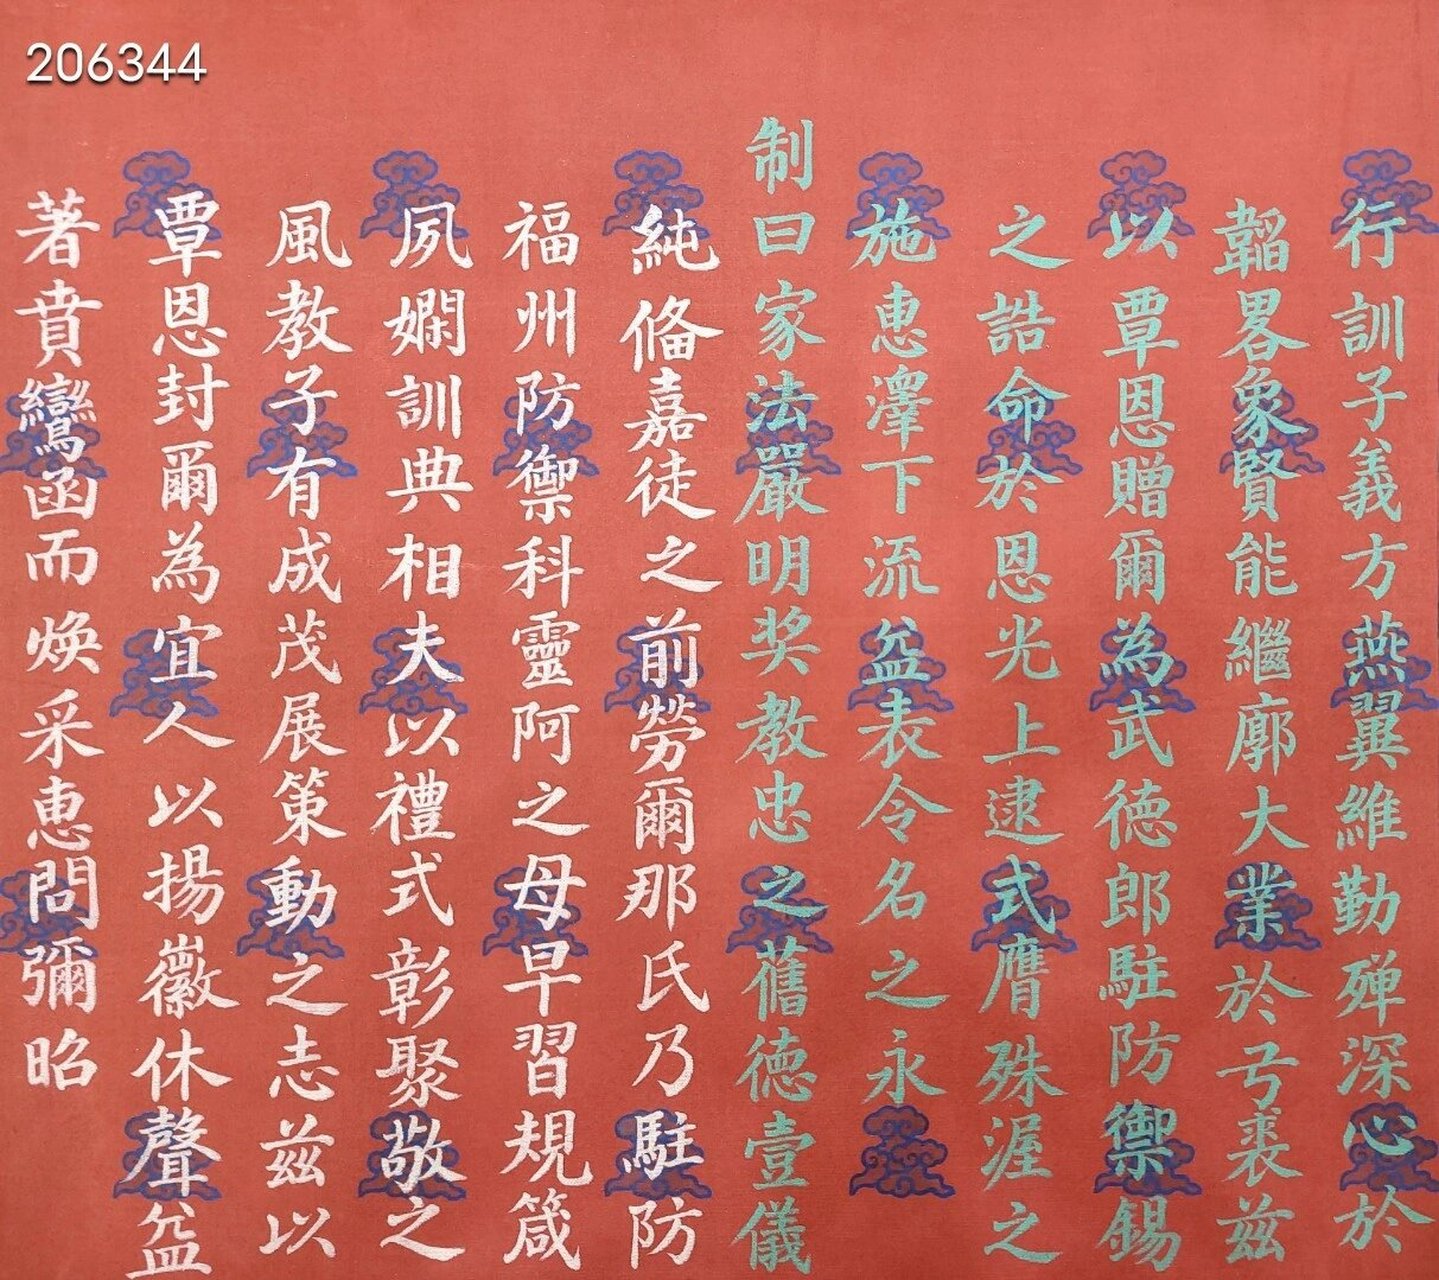 206344
行訓子義方燕翼維勤殫深心於
韜畧象賢能繼廓大業於弓裘兹
以覃恩贈爾為武德郎駐防禦錫
之誥命於恩光上逮式膺殊渥之
施惠澤下流益表令名之永
制曰家法嚴明奖教忠之舊德壼儀
純俻嘉徒之前勞爾那氏乃駐防
福州防禦科靈阿之母早習規箴
夙嫻訓典相夫以禮式彰聚敬之
風教子有成茂展策動之志兹以
覃恩封爾為宜人以揚徽休聲益
著賁鸞函而焕采惠問彌昭